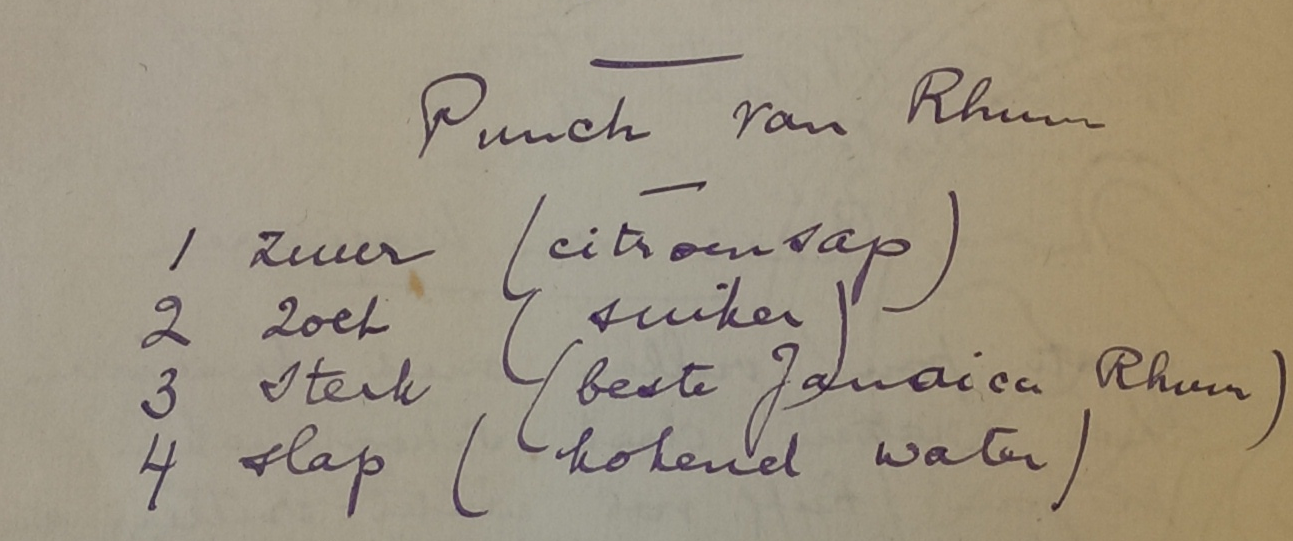 Punch van Rhum
1 zuur (citroensap)
2 zoet (suiker)
3 sterk (beste Jamaica Rhum)
4 slap (kokend water)